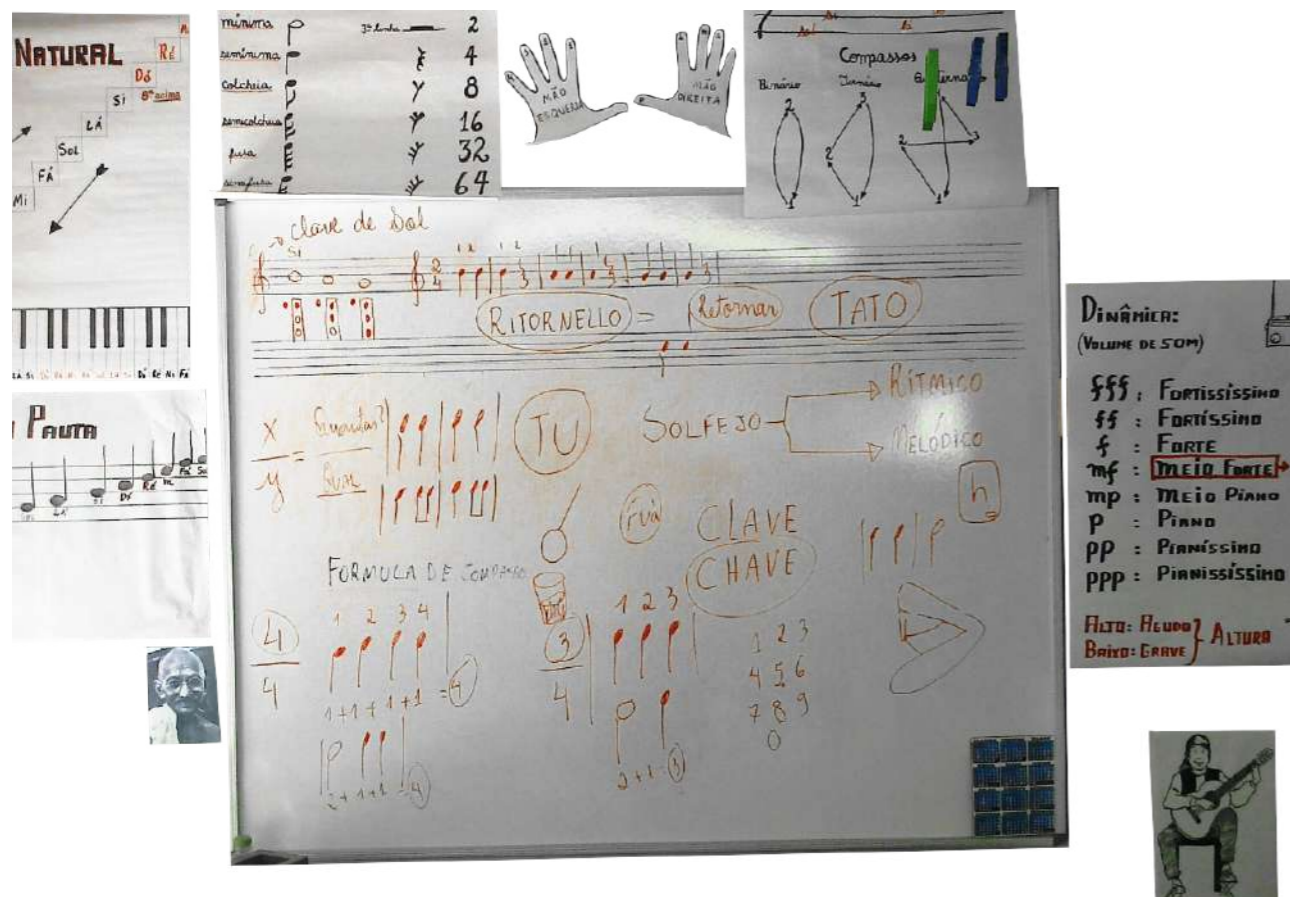 NATURAL
RÉ
DÓ
8ª acima
Si
LÁ
Sol
FÁ
Mi
PAUTA
Lá
Si
Dó
Ré
Mi
Fá
mínima
3ª linha
2
semínima
4
colcheia
8
semicolcheia
16
fusa
32
semifusa
64
MÃO
ESQUERDA
MÃO
DIREITA
sol
si
Compassos
Binário
Ternário
2
1
3
2
1
2
3
1
Clave de Sol
Si
2
4
1 2
1 2
RITORNELLO = Retornar
TATO
x
y
=
Quantas?
Qual
TU
SOLFEJO
RÍTMICO
MELÓDICO
h
CLAVE
CHAVE
FORMULA DE COMPASSO
4
4
1 2 3 4
1+1+1+1 = 4
2+1+1 = 4
3
4
1 2 3
2+1=3
1 2 3
4 5 6
7 8 9
0
DINÂMICA:
(VOLUME DE SOM)
fff : FORTISSÍSSIMO
ff : FORTÍSSIMO
f : FORTE
mf : MEIO FORTE
mp : MEIO PIANO
p : PIANO
pp : PIANÍSSIMO
ppp : PIANISSÍSSIMO
ALTO: AGUDO
BAIXO: GRAVE } ALTURA